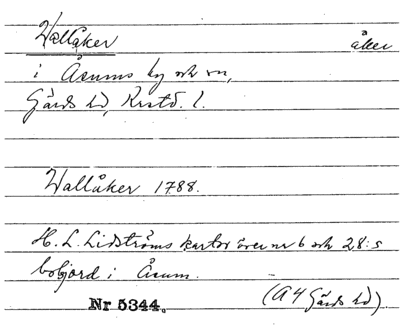 Wallåker åker
i Åsums by och sn,
Gärds hd, Kristd. l.
Wallåker 1788.
H. L. Lidströms kartor över nr 6 och 28:s
boljord i Åsum.
(A 4 Gärds hd)
Nr 5344.